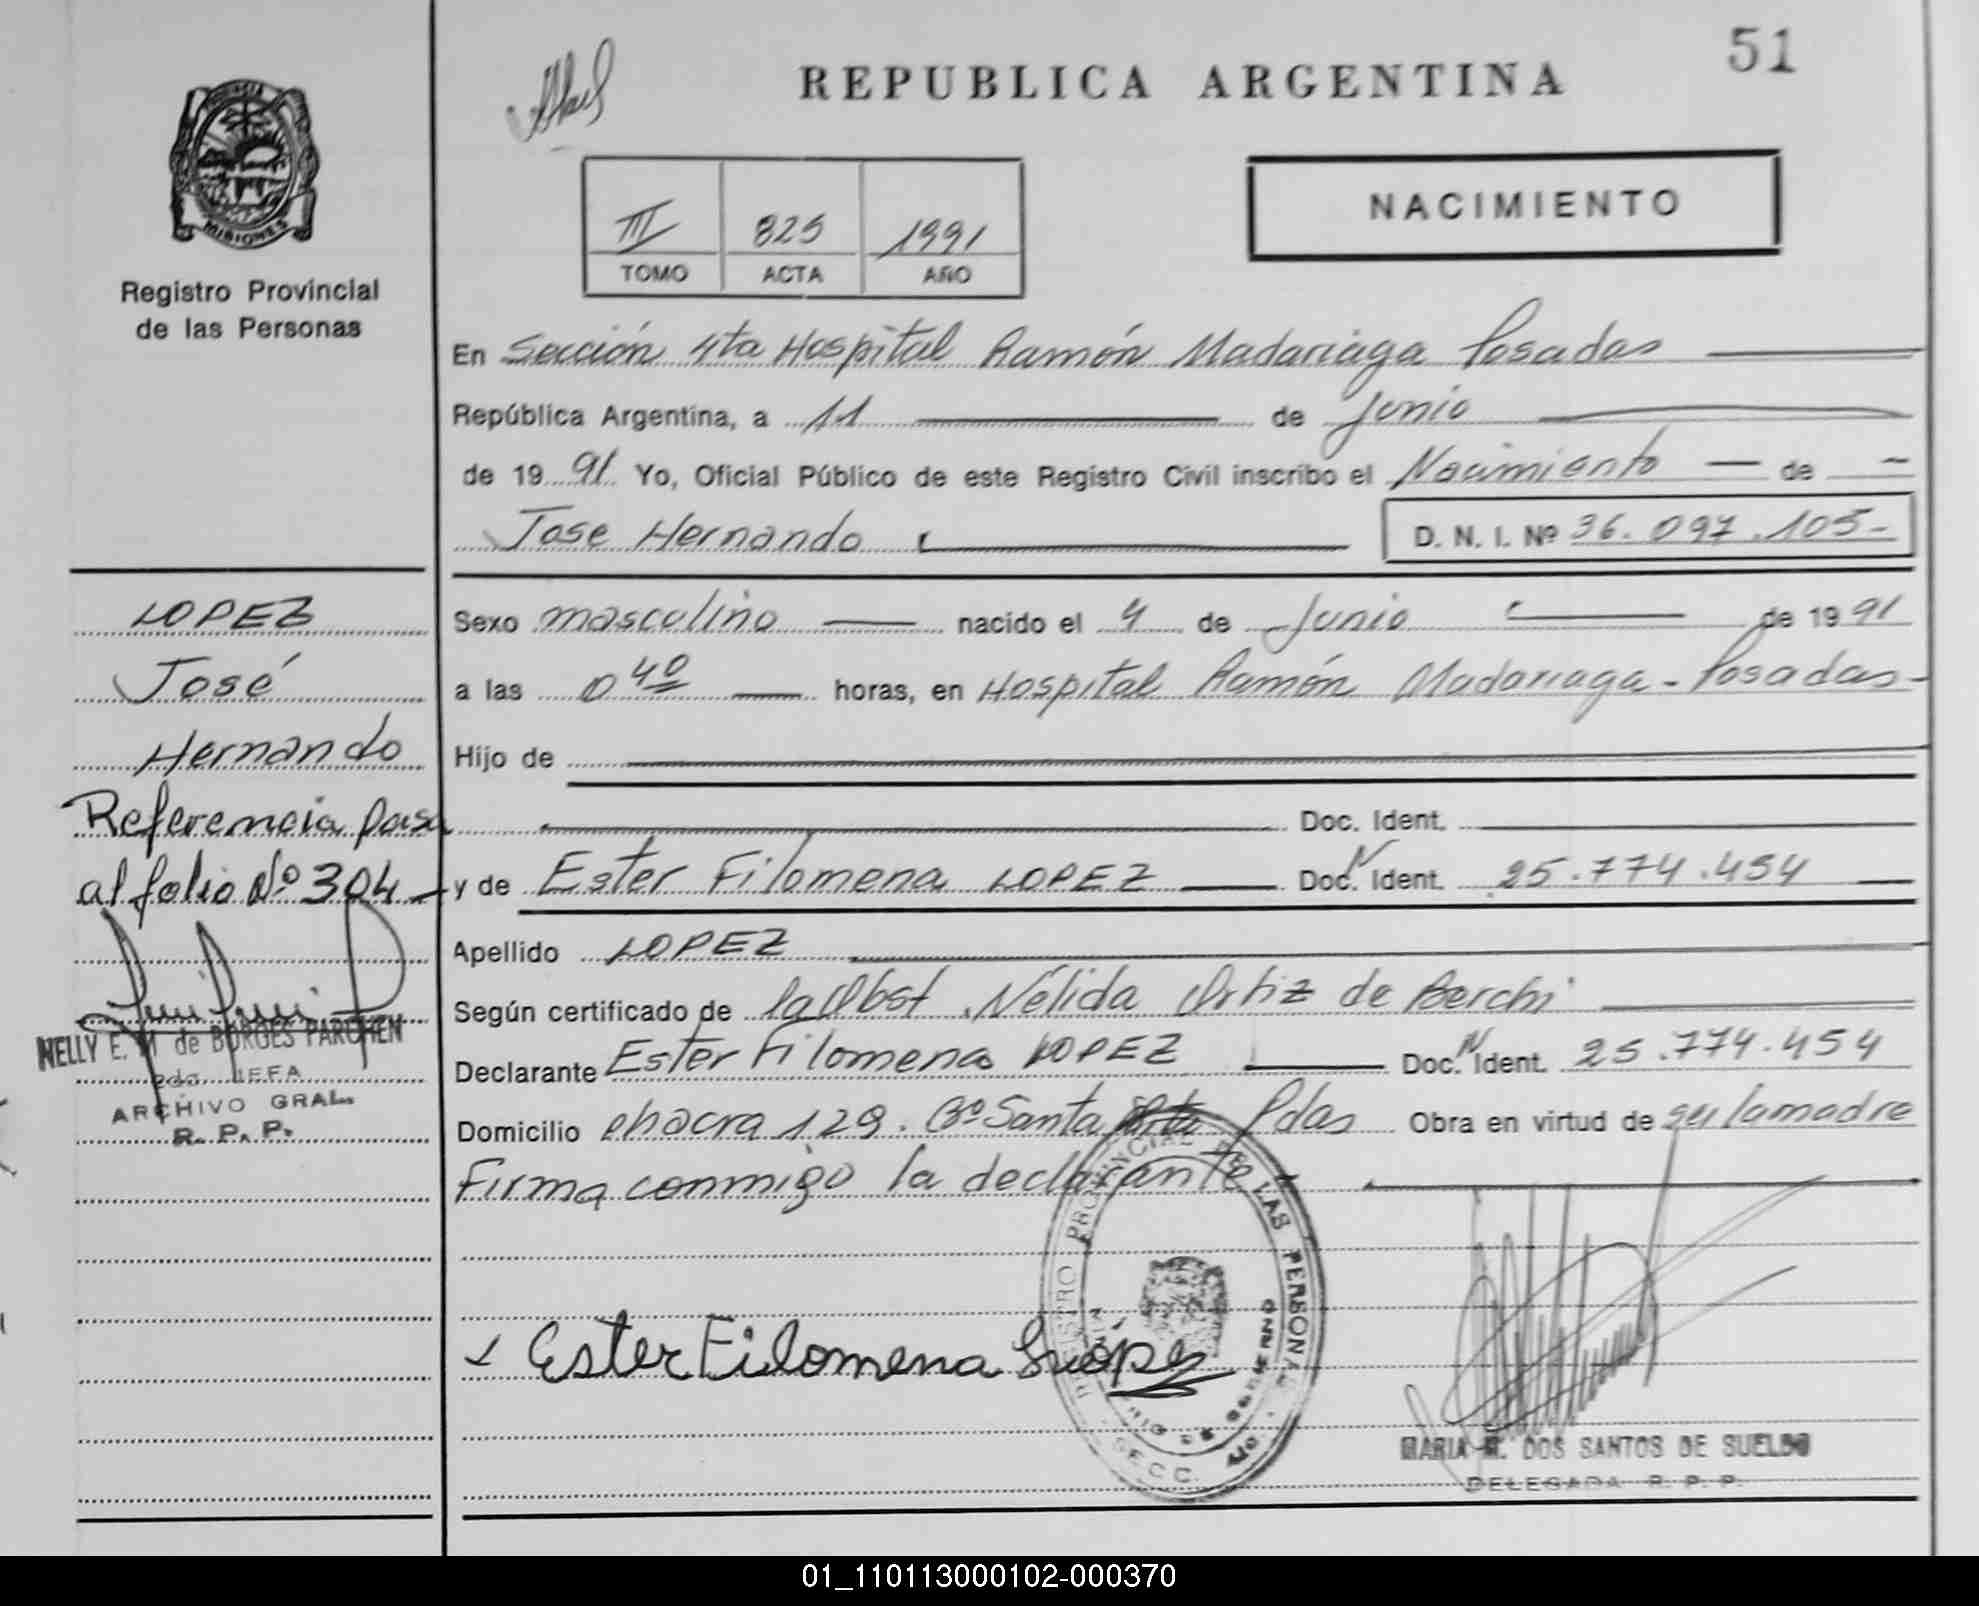 51
REPUBLICA ARGENTINA
PROVINCIA
MISIONES
Registro Provincial
de las Personas
NACIMIENTO
III 825 1991
TOMO ACTA AÑO
En Sección 4ta Hospital Ramón Madariaga Posadas
República Argentina, a 11 de Junio
de 19 91 Yo, Oficial Público de este Registro Civil inscribo el Nacimiento de
Jose Hernando D. N. I. Nº 36.097.105-
LOPEZ
José
Hernando
Referencia pasa
al folio Nº 304
NELLY E. M de BORGES PARCHEN
2da. JEFA
ARCHIVO GRAL.
R. P. P.
Sexo masculino nacido el 4 de Junio de 19 91
a las 0 40 horas, en Hospital Ramón Madariaga - Posadas-
Hijo de
Doc. Ident.
y de Ester Filomena LOPEZ Doc. N Ident. 25.774.454
Apellido LOPEZ
Según certificado de la Obst. Nélida Ortiz de Berchi
Declarante Ester Filomena LOPEZ Doc. N Ident. 25.774.454
Domicilio chacra 129. Bº Santa Rita Pdas Obra en virtud de ser la madre
Firma conmigo la declarante
REGISTRO PROVINCIAL DE LAS PERSONAS
SECC.
Ester Filomena Luópez
MARIA M. DOS SANTOS DE SUELDO
DELEGADA R. P. P.
01_110113000102-000370